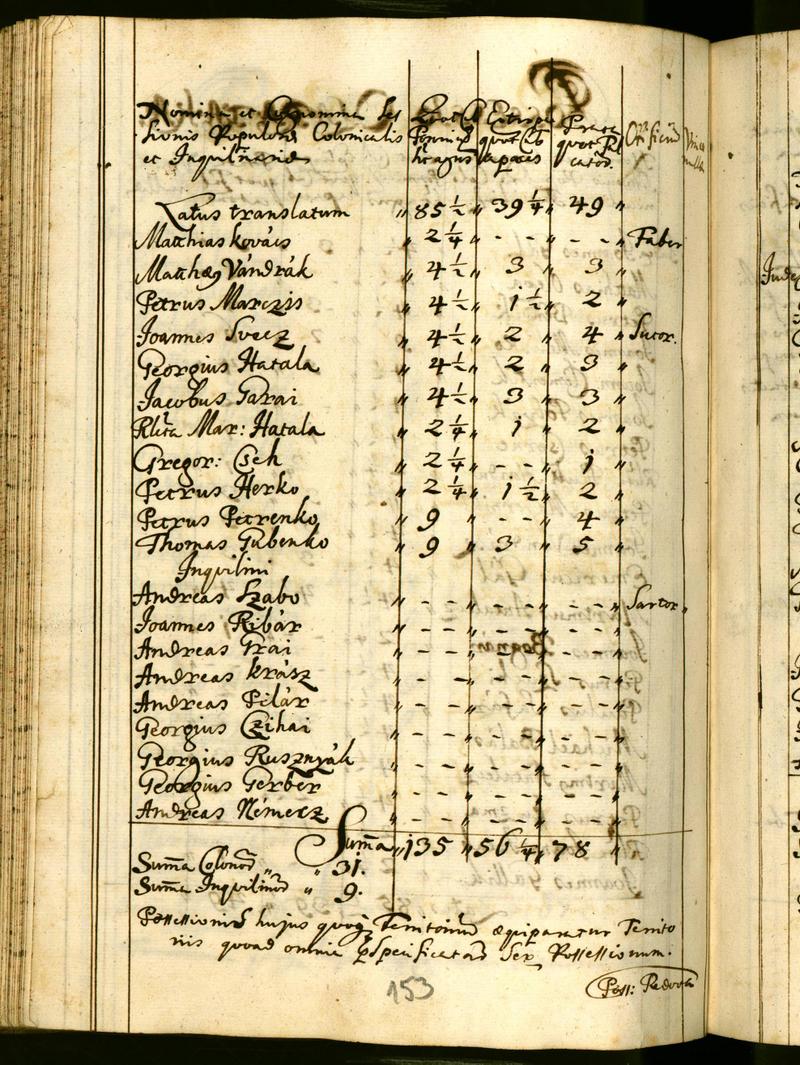 Nomina et Cognomina Ses
sionis Populorũ Colonicalis
et Inquilinariæ
Quot
Extirpa
quot
capaces
Prata
quot
Latus translatum " 85 ½ " 39 ¼ " 49 "
Matthias kovács " 2 ¼ " - - " - - " Faber
Matthæ9 Vándrák " 4 ½ " 3 " 3 "
Petrus Marczis " 4 ½ " 1 ½ " 2 "
Joannes Svecz " 4 ½ " 2 " 4 " Sutor.
Georgius Hatala " 4 ½ " 2 " 3 "
Jacobus Garai " 4 ½ " 3 " 3 "
Rlcta Mar: Hatala " 2 ¼ " 1 " 2 "
Gregor: Cseh " 2 ¼ " - - " 1 "
Petrus Herko " 2 ¼ " 1 ½ " 2 "
Petrus Petrenko " 9 " - - " 4 "
Thomas Gubenko " 9 " 3 " 5 "
Inquilini
Andreas Szabo " - - " - - " - - " Sartor "
Joannes Ribár " - - " - - " - - "
Andreas Grai " - - " - - " - - "
Andreas krász " - - " - - " - - "
Andreas Pilár " - - " - - " - - "
Georgius Czihai " - - " - - " - - "
Georgius Rusznyák " - - " - - " - - "
Georgius Gerber " - - " - - " - - "
Andreas Némecz " - - " - - " - - "
Summa " 135 " 56 ¼ " 78 "
Suma Colonorũ " " 31.
Suma Inquilinorũ " 9.
Possessionis hujus quoq3 Territorium æquiparatur Territo
riis quoad omnia Possessionum.
Poss: Radova
153